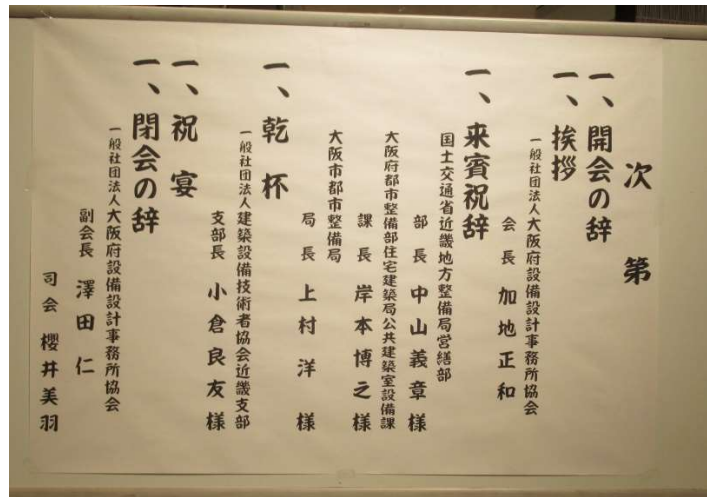 次第
一、開会の辞
一、挨拶
一般社団法人大阪府設備設計事務所協会
会長 加地正和
一、来賓祝辞
国土交通省近畿地方整備局営繕部
部長 中山義章様
大阪府都市整備部住宅建築局公共建築室設備課
課長 岸本博之様
大阪市都市整備局
局長 上村洋様
一、乾杯
一般社団法人建築設備技術者協会近畿支部
支部長 小倉良友様
一、祝宴
一、閉会の辞
一般社団法人大阪府設備設計事務所協会
副会長 澤田仁
司会 櫻井美羽